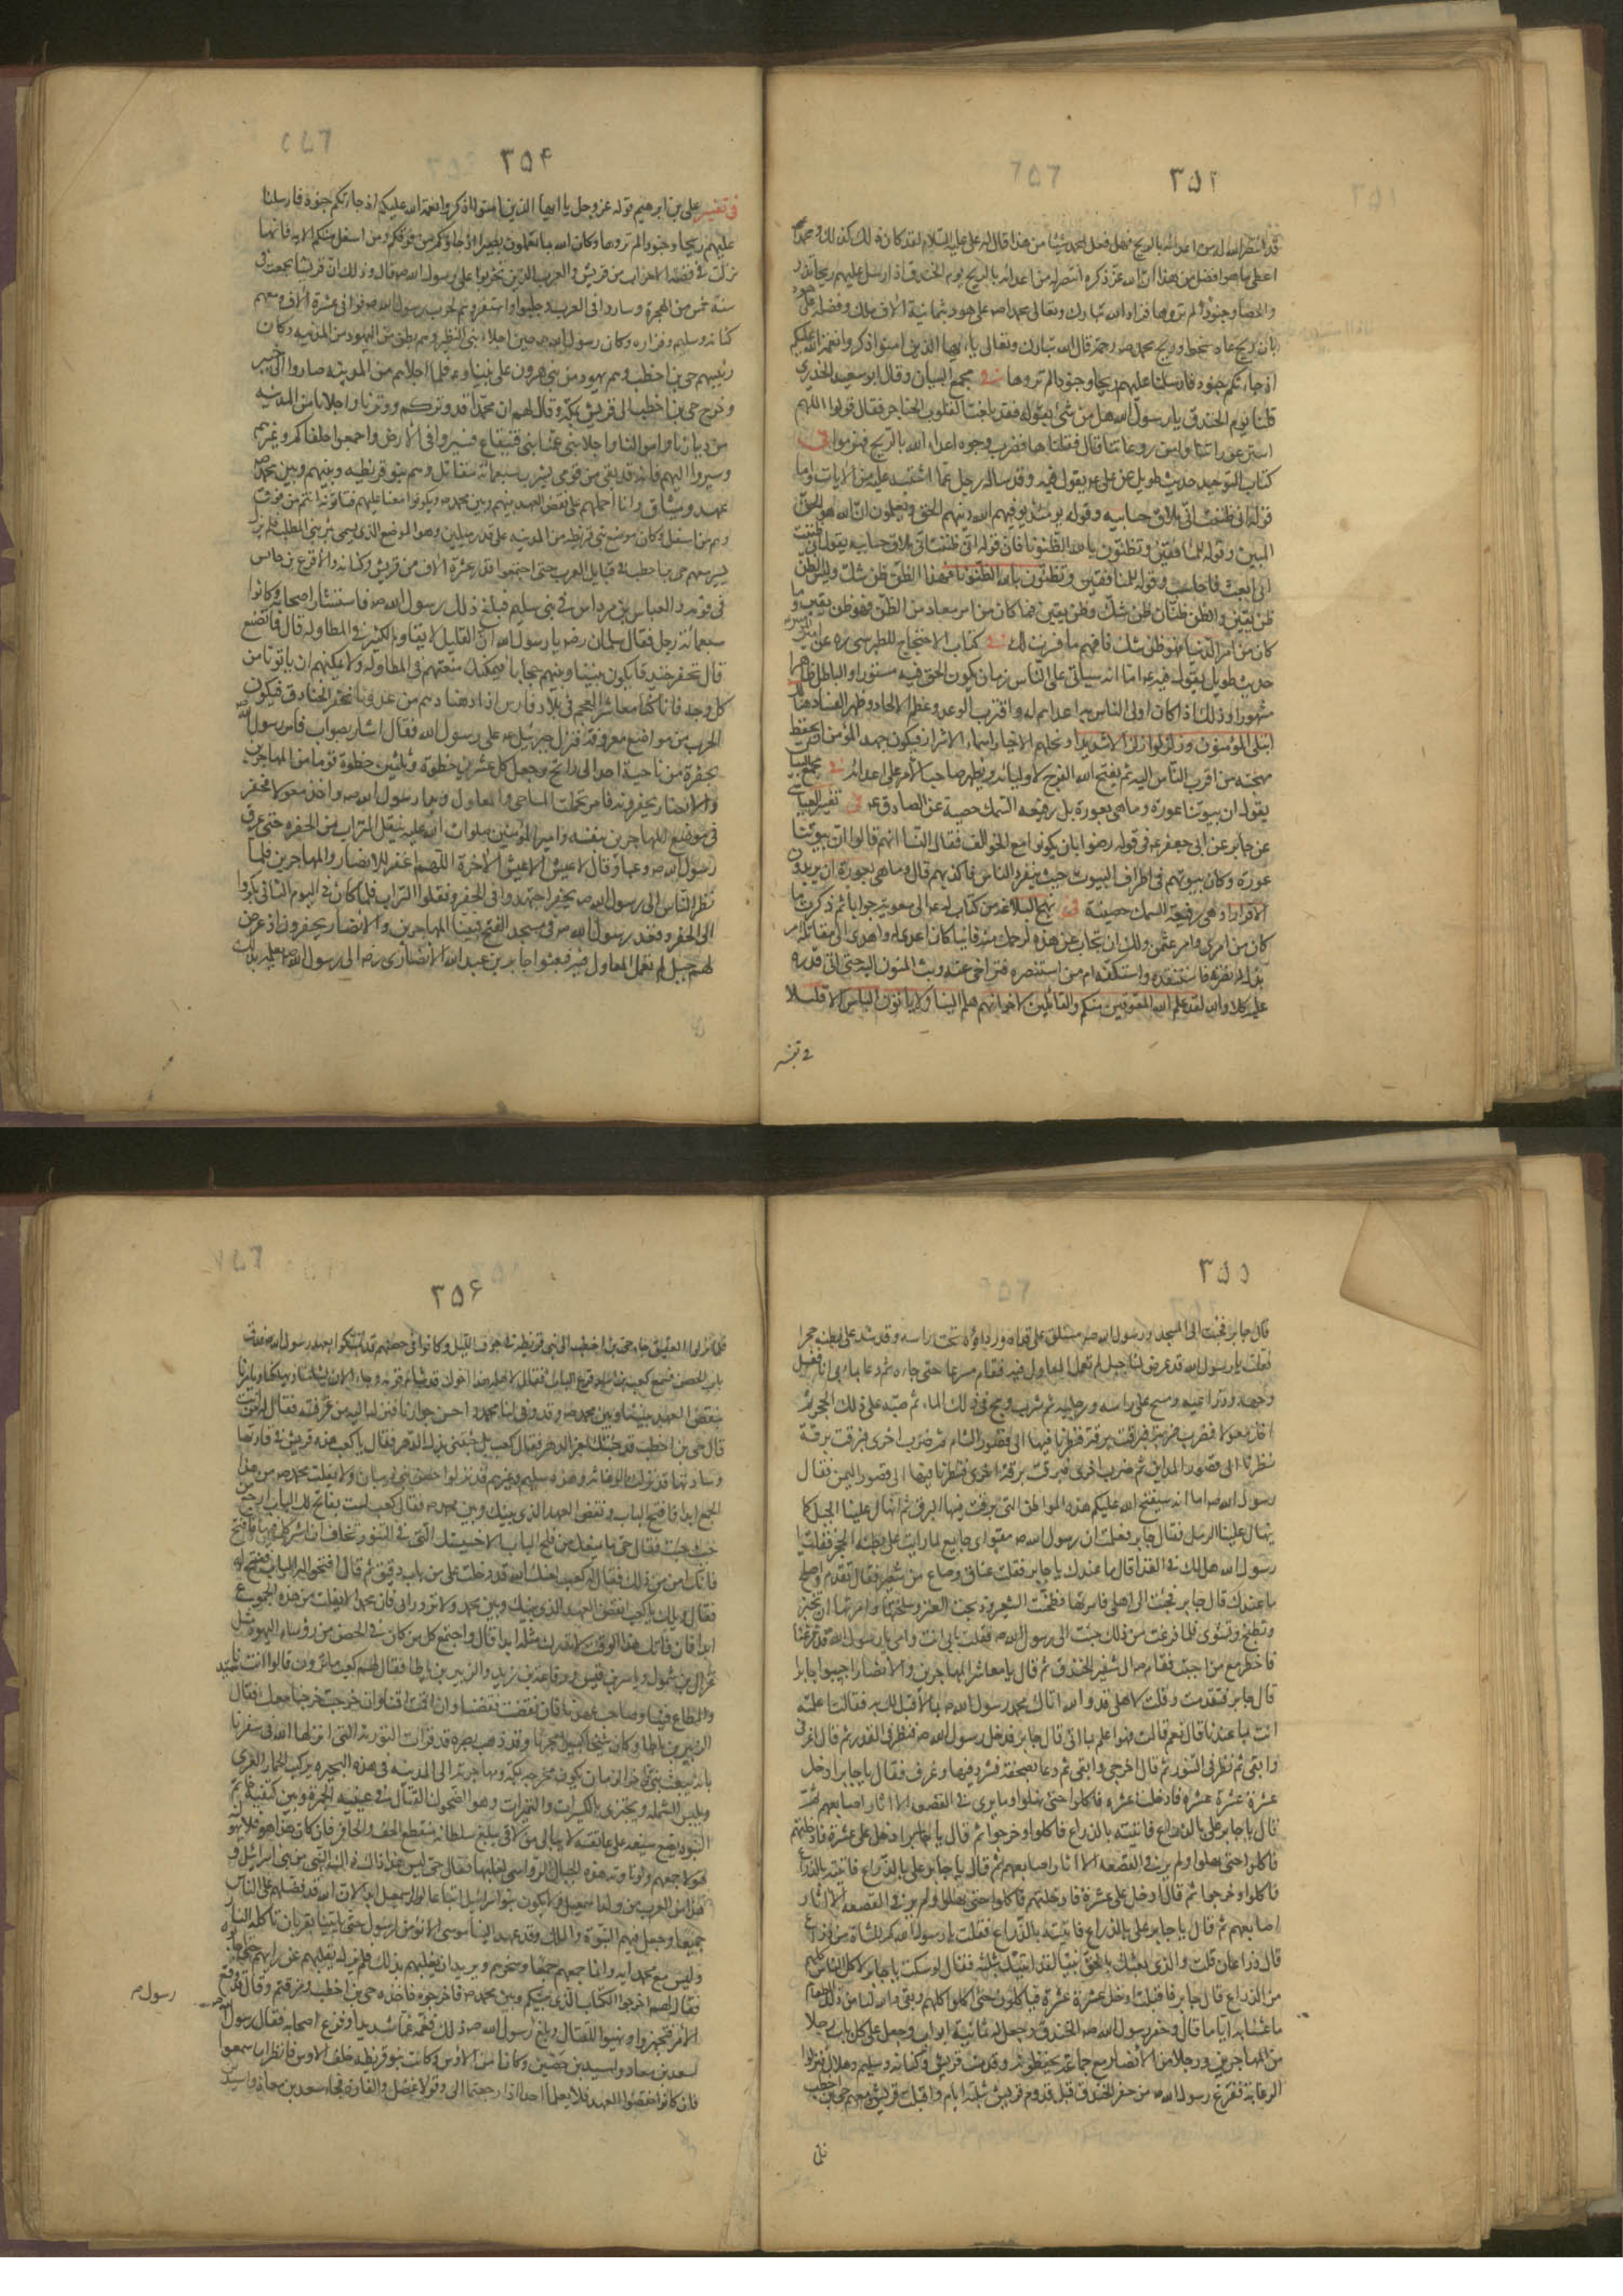 ٣٥٣
قد انتصر الله له من اعدائه بالريح فهل فعل لمحمد شيئا من هذا قال له علي عليه السلام لقد كان ذلك كذلك ومحمد ص
اعطى ما هو افضل من هذا ان الله عز ذكره انتصر له من اعدائه بالريح يوم الخندق اذ ارسل عليهم ريحا تذرو
والحصا وجنودا لم تروها فزاد الله تبارك وتعالى محمدا ص على هود بثمانية الاف ملك وفضله على هود
بان ريح عاد سخط وريح محمد ص رحمة قال الله تبارك وتعالى يا ايها الذين امنوا اذكروا نعمة الله عليكم
اذ جاءتكم جنود فارسلنا عليهم ريحا وجنودا لم تروها في مجمع البيان وقال ابو سعيد الخدري
قلنا يوم الخندق يا رسول الله هل من شيء نقوله فقد بلغت القلوب الحناجر فقال قولوا اللهم
استر عوراتنا وامن روعاتنا قال فقلناها فضرب وجوه اعداء الله بالريح فهزموا في
كتاب التوحيد حديث طويل عن علي ع يقول فيه وقد ساله رجل عما اشتبه عليه من الايات واما
قوله اني ظننت اني ملاق حسابيه وقوله يومئذ يوفيهم الله دينهم الحق ويعلمون ان الله هو الحق
المبين وقوله للمنافقين وتظنون بالله الظنونا فان قوله اني ظننت اني ملاق حسابيه يقول اني ظننت
اني ابعث فاحاسب وقوله للمنافقين وتظنون بالله الظنونا فهذا الظن ظن شك وليس الظن
ظن يقين والظن ظنان ظن شك وظن يقين فما كان من امر معاد من الظن فهو ظن يقين وما
كان من امر الدنيا فهو ظن شك فافهم ما فسرت لك في كتاب الاحتجاج للطبرسي ره عن امير المؤمنين
حديث طويل يقول فيه ع اما انه سياتي على الناس زمان يكون الحق فيه مستورا والباطل ظاهرا
مشهورا وذلك اذا كان اولى الناس به اعدائهم له واقترب الوعد وعظم الالحاد وظهر الفساد هنالك
ابتلى المؤمنون وزلزلوا زلزالا شديدا ونحلهم الاخيار اسماء الاشرار فيكون جهد المؤمن ان يحفظ
مهجته من اقرب الناس اليه ثم يفتح الله الفرج لاوليائه ويظهر صاحب الامر على اعدائه في مجمع البيان
يقولون ان بيوتنا عورة وما هي بعورة بل رفيعة السمك حصينة عن الصادق ع في تفسير العياشي
عن جابر عن ابي جعفر ع في قوله رضوا بان يكونوا مع الخوالف فقال النساء انهم قالوا ان بيوتنا
عورة وكان بيوتهم في اطراف البيوت حيث ينفرد الناس فاكذبهم قال وما هي بعورة ان يريدون
الا فرارا وهي رفيعة السمك حصينة في نهج البلاغة من كتاب له ع الى معوية جوابا ثم ذكرت ما
كان من امري وامر عثمن ولك ان تجاب عن هذه لرحمك منه فاينا كان اعدى له واهدى الى مقاتله ام
بذل له نصرته فاستقعده واستكفه ام من استنصره فتراخى عنه وبث المنون اليه حتى اتى قدره
عليه كلا والله لقد علم الله المعوقين منكم والقائلين لاخوانهم هلم الينا ولا ياتون الباس الا قليلا
في تفسير
٣٥٤
في تفسير علي بن ابرهيم قوله عز وجل يا ايها الذين امنوا اذكروا نعمة الله عليكم اذ جاءتكم جنود فارسلنا
عليهم ريحا وجنودا لم تروها وكان الله بما تعملون بصيرا اذ جاؤكم من فوقكم ومن اسفل منكم الايه فانها
نزلت في قصة الاحزاب من قريش والعرب الذين تحزبوا على رسول الله ص قال وذلك ان قريشا تجمعت في
سنة خمس من الهجرة وساروا في العرب وجلبوا واستفزوهم لحرب رسول الله ص فوافوا في عشرة الاف ومعهم
كنانة وسليم وفزاره وكان رسول الله ص حين اجلا بني النظير وهم بطن من اليهود من المدينه وكان
رئيسهم حي بن اخطب وهم يهود من بني هرون على نبينا وع فلما اجلاهم من المدينه صاروا الى خيبر
وخرج حي بن اخطب الى قريش بمكة وقال لهم ان محمدا قد وتركم ووترنا واجلانا من المدينه
من ديارنا واموالنا واجلا بني عمنا بني قينقاع فسيروا في الارض واجمعوا حلفائكم وغيرهم
وسيروا اليهم فانه قد بقي من قومي بيثرب سبعمائة مقاتل وهم بنو قريظه وبينهم وبين محمد ص
عهد وميثاق وانا احملهم على نقض العهد بينهم وبين محمد ص ويكونوا معنا عليهم فتاتونه انتم من فوق
وهم من اسفل وكان موضع بني قريظه من المدينه على قدر ميلين وهو الموضع الذي يسمى بئر بني المطلب فلم يزل
يسير معهم حي بن اخطب في قبايل العرب حتى اجتمعوا قدر عشرة الاف من قريش وكنانه والاقرع بن حابس
في قومه والعباس بن مرداس في بني سليم فبلغ ذلك رسول الله ص فاستشار اصحابه وكانوا
سبعمائة رجل فقال سلمان رض يا رسول الله ان القليل لا يقاوم الكثير في المطاولة قال فما نصنع
قال نحفر خندقا يكون بيننا وبينهم حجابا فيمكنك منعهم في المطاولة ولا يمكنهم ان ياتونا من
كل وجه فانا كنا معاشر العجم في بلاد فارس اذا دهمنا دهم من عدونا نحفر الخنادق فيكون
الحرب من مواضع معروفة فنزل جبرئيل ع على رسول الله فقال اشار بصواب فامر رسول الله
بحفره من ناحية احد الى راتج وجعل كل عشرين خطوة وثلثين خطوة قوما من المهاجرين
والانصار يحفرونه فامر فحملت المساحي والمعاول وبدا رسول الله ص واخذ معولا فحفر
في موضع المهاجرين بنفسه وامير المؤمنين صلوات الله عليه ينقل التراب من الحفره حتى عرق
رسول الله ص وعيا وقال لا عيش الا عيش الاخرة اللهم اغفر للانصار والمهاجرين فلما
نظر الناس الى رسول الله ص يحفر اجتهدوا في الحفر ونقلوا التراب فلما كان في اليوم الثاني بكروا
الى الحفر وقعد رسول الله ص في مسجد الفتح فبينا المهاجرين والانصار يحفرون اذ عرض
لهم جبل لم تعمل المعاول فيه فبعثوا جابر بن عبد الله الانصاري رض الى رسول الله ص يعلمه بذلك
٣٥٥
قال جابر فجئت الى المسجد ورسول الله ص مستلق على قفاه ورداؤه تحت راسه وقد شد على بطنه حجرا
فقلت يا رسول الله قد عرض لنا جبل لم تعمل المعاول فيه فقام مسرعا حتى جاءه ثم دعا بماء في اناء فغسل
وجهه وذراعيه ومسح على راسه ورجليه ثم شرب ومج في ذلك الماء ثم صبه على ذلك الحجر ثم
اخذ معولا فضرب ضربة فبرقت برقة فنظرنا فيها الى قصور الشام ثم ضرب اخرى فبرقت برقة
نظرنا الى قصور المداين ثم ضرب اخرى فبرقت برقة اخرى فنظرنا فيها الى قصور اليمن فقال
رسول الله ص اما انه سيفتح الله عليكم هذه المواطن التي برقت فيها البرق ثم انهال علينا الجبل كما
ينهال علينا الرمل فقال جابر فعلمت ان رسول الله ص مقوى اي جايع لما رايت على بطنه الحجر فقلت يا
رسول الله هل لك في الغذا قال ما عندك يا جابر فقلت عناق وصاع من شعير فقال تقدم واصلح
ما عندك قال جابر فجئت الى اهلي فامرتها فطحنت الشعير وذبحت العنز وسلختها وامرتها ان تخبز
وتطبخ وتشوى فلما فرغت من ذلك جئت الى رسول الله ص فقلت بابي انت وامي يا رسول الله قد فرغنا
فاحضر مع من احببت فقام ص الى شفير الخندق ثم قال يا معاشر المهاجرين والانصار اجيبوا جابرا
قال جابر فتقدمت وقلت لاهلي قد والله اتاك محمد رسول الله ص بما لا قبل لك به فقالت اعلمته
انت بما عندنا قال نعم قالت فهو اعلم بما اتى قال جابر فدخل رسول الله ص فنظر في القدر ثم قال اغرفي
وابقي ثم نظر في التنور ثم قال اخرجي وابقي ثم دعا بصحفة فثرد فيها وغرف فقال يا جابر ادخل
عشرة عشرة فادخلت عشرة فاكلوا حتى نهلوا وما يرى في القصعة الا اثار اصابعهم ثم
قال يا جابر علي بالذراع فاتيته بالذراع فاكلوا وخرجوا ثم قال يا جابر ادخل علي عشرة فادخلتهم
فاكلوا حتى نهلوا ولم ير في القصعه الا اثار اصابعهم ثم قال يا جابر علي بالذراع فاتيته بالذراع
فاكلوا وخرجوا ثم قال ادخل علي عشرة فادخلتهم فاكلوا حتى نهلوا ولم ير في القصعه الا اثار
اصابعهم ثم قال يا جابر علي بالذراع فاتيته بالذراع فقلت يا رسول الله كم للشاة من ذراع
قال ذراعان قلت والذي بعثك بالحق نبيا لقد اتيتك بثلثه فقال لو سكت يا جابر لاكل الناس كلهم
من الذراع قال جابر فاقبلت ادخل عشرة عشرة فياكلون حتى اكلوا كلهم وبقي والله لنا من ذلك الطعام
ما عشنا به اياما قال وحفر رسول الله ص الخندق وجعل له ثمانية ابواب وجعل على كل باب رجلا
من المهاجرين ورجلا من الانصار مع جماعة يحفظونه وقدمت قريش وكنانه وسليم وهلال فنزلوا
الرغابة ففرغ رسول الله ص من حفر الخندق قبل قدوم قريش بثلثة ايام واقبلت قريش ومعهم حي بن اخطب
فلما
٣٥٦
فلما نزلوا العقيق جاء حي بن اخطب الى بني قريظة في جوف الليل وكانوا في حصنهم قد تمسكوا بعهد رسول الله ص فدق
باب الحصن فسمع كعب بن اسد قرع الباب فقال لاهله هذا اخوك قد شام قومه وجاء الان يشامنا ويهلكنا ويامرنا
بنقض العهد بيننا وبين محمد ص وقد وفى لنا محمد واحسن جوارنا فنزل اليه من غرفته فقال له من انت
قال حي بن اخطب قد جئتك بعز الدهر فقال كعب بل جئتني بذل الدهر فقال يا كعب هذه قريش في قادتها
وسادتها قد نزلت بالعقيق
الجمع ابدا فافتح الباب وانقض العهد الذي بينك وبين محمد ص فقال كعب لست بفاتح لك الباب ارجع من
حيث جئت فقال حي ما يمنعك من فتح الباب الا حسيستك التي في التنور تخاف ان اشركك فيها فافتح
فانك امن من ذلك فقال له كعب لعنك الله قد دخلت علي من باب دقيق ثم قال افتحوا له الباب ففتح له
فقال ويلك يا كعب انقض العهد الذي بينك وبين محمد ولا ترد رايي فان محمدا لا يفلت من هذه الجموع
ابدا فان فاتك هذا الوقت لا تدرك مثله ابدا قال واجتمع كل من كان في الحصن من رؤساء اليهود مثل
غزال بن شمول وياسر بن قيس ورفاعة بن زيد والزبير بن باطا فقال لهم كعب ما ترون قالوا انت سيدنا
والمطاع فينا وصاحب عهدنا فان نقضت نقضنا وان اقمت اقمنا وان خرجت خرجنا معك فقال
الزبير بن باطا وكان شيخا كبيرا مجربا وقد ذهب بصره قد قرات التورية التي انزلها الله في سفرنا
بانه يبعث نبيا في اخر الزمان يكون مخرجه بمكة ومهاجرته الى المدينه في هذه البحيره يركب الحمار العري
ويلبس الشمله ويجتزي بالكسيرات والتميرات وهو الضحوك القتال في عينيه الحمرة وبين كتفيه خاتم
النبوه يضع سيفه على عاتقه لا يبالي من لاقى يبلغ سلطانه منقطع الخف والحافر فان كان هذا هو فلا يهولنه
هؤلاء وجمعهم ولو ناوته هذه الجبال الرواسي لغلبها فقال حي ليس هذا ذاك ذاك النبي من بني اسرائيل و
هذا من العرب من ولد اسمعيل ولا يكون بنو اسرائيل اتباعا لولد اسمعيل ابدا لان الله قد فضلهم على الناس
جميعا وجعل فيهم النبوة والملك وقد عهد الينا موسى الا نؤمن لرسول حتى ياتينا بقربان تاكله النار
وليس مع محمد اية وانما جمعهم جمعا وسحرهم ويريد ان يغلبهم بذلك فلم يزل يقلبهم عن رايهم حتى اجابوه
فقال لهم اخرجوا الكتاب الذي بينكم وبين محمد ص فاخرجوه فاخذه حي بن اخطب ومزقه وقال قد وقع
الامر فتجهزوا وتهيئوا للقتال وبلغ رسول الله ص ذلك فغمه غما شديدا وفزع اصحابه فقال رسول الله
لسعد بن معاد واسيد بن حضين وكانا من الاوس وكانت بنو قريظه حلفاء الاوس فانظرا ما صنعوا
فان كانوا نقضوا العهد فلا يعلما احدا اذا رجعتما الي وقولا عضل والقارة فجاء سعد بن معاد واسيد
رسول ص